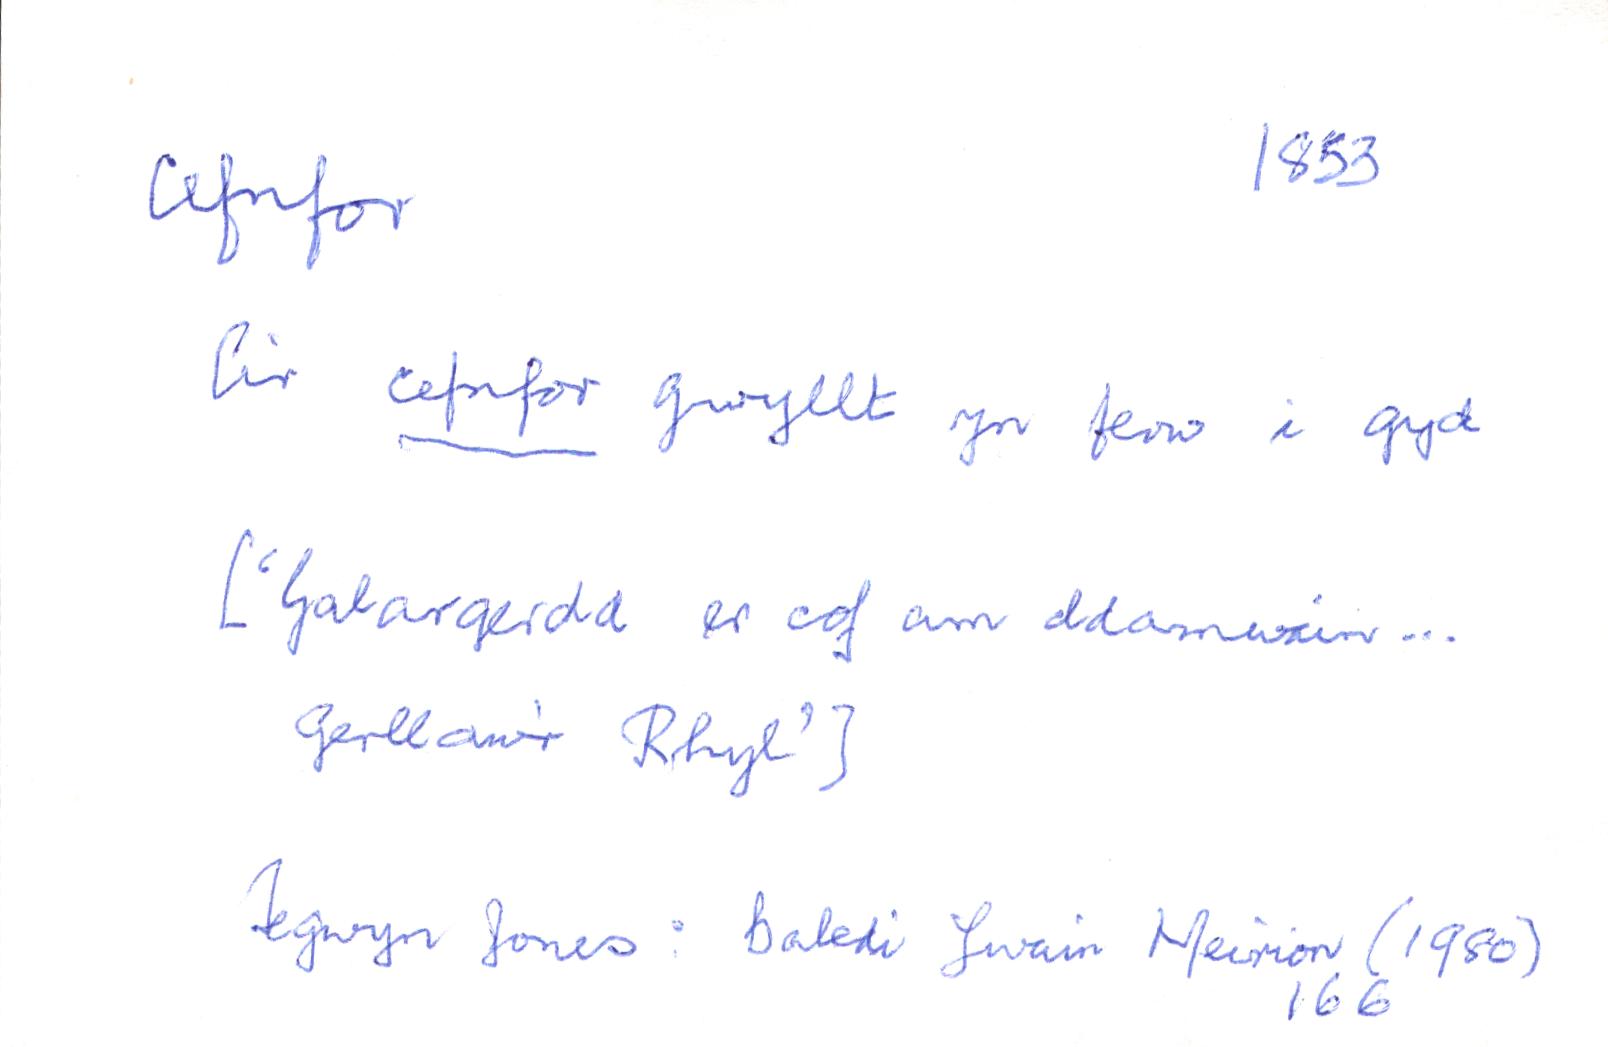 Cefnfor 1853
cefnfor gwyllt yn ferw i gyd
['Galargerdd er cof am ddamwain...
Gerllaw'r Rhyl']
Tegwyn Jones: Baledi Ywain Meirion (1980)
166